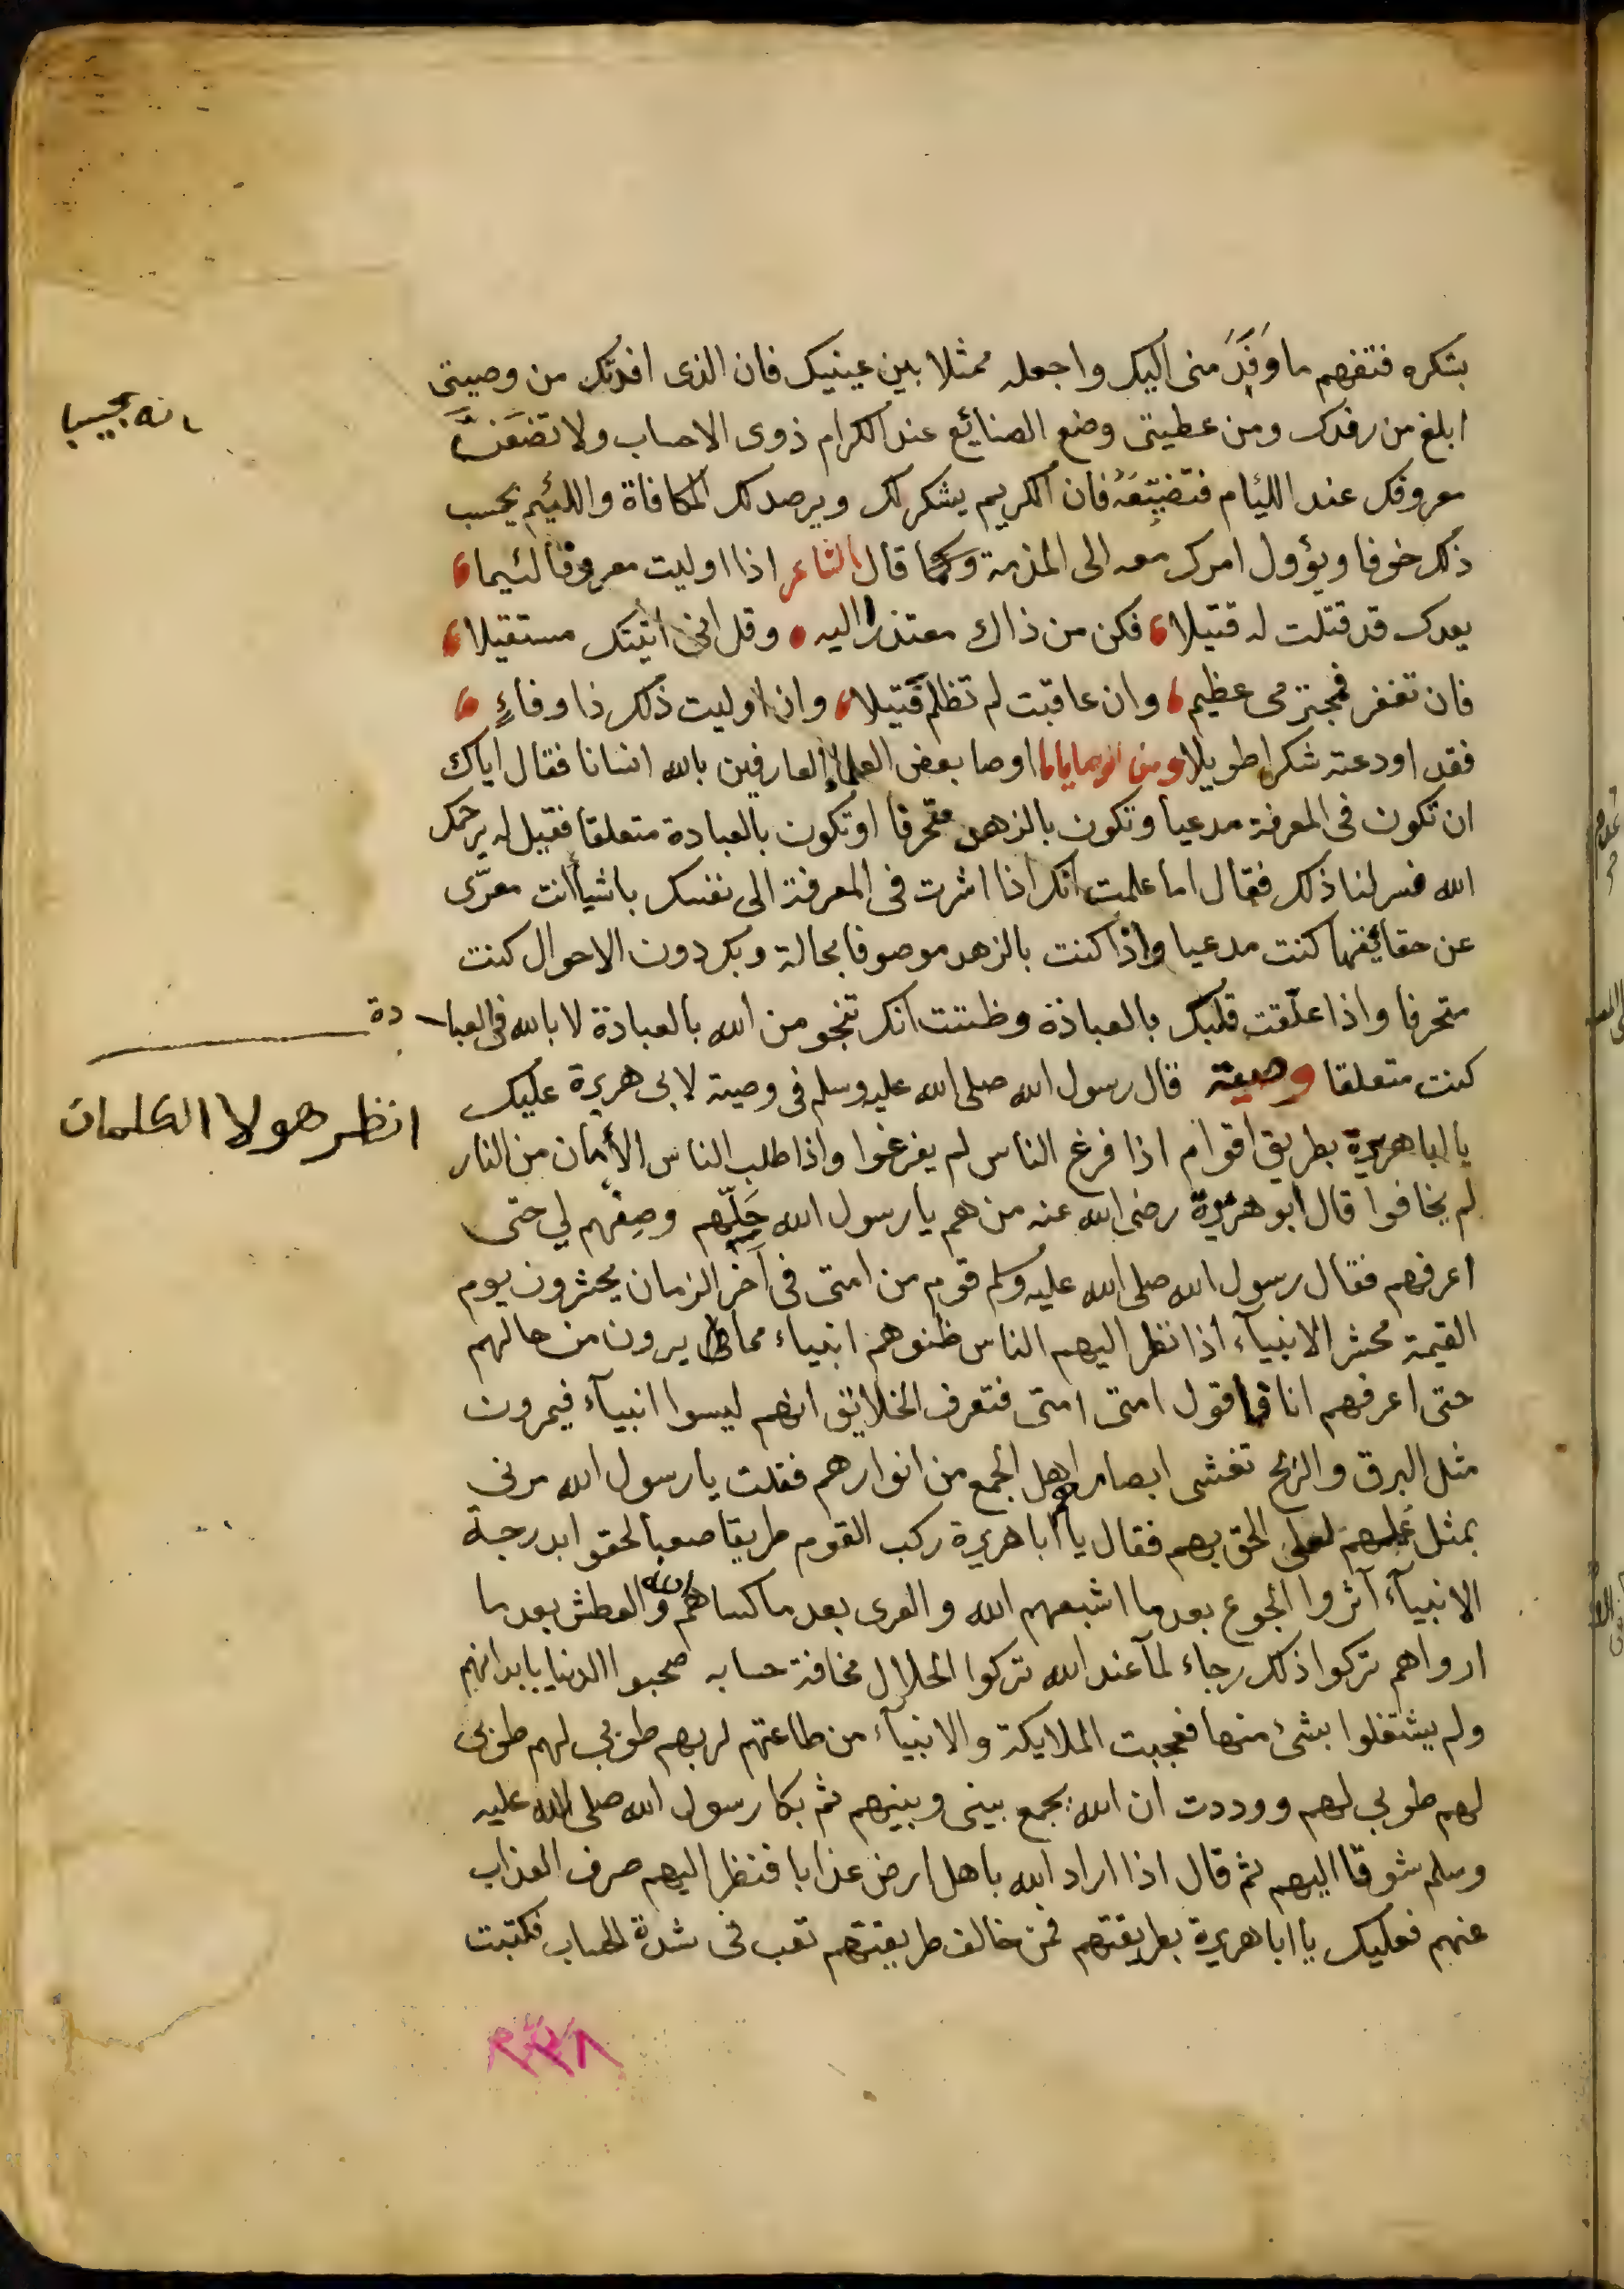 بتكره فتفهم ما وَفَدَ منى اليك واجعله ممثلا بين عينيك فان الذى افدتك من وصيتى
ابلغ من رفدك ومن عطيتى وضع الصنايع عند الكرام ذوى الاحساب ولا تضعنّ
معروفك عند الليام فتضيّعَهُ فان الكريم يشكر لك ويرصد لك المكافاة واللئيم يحسب
ذلك خوفا ويؤول امرك معه الى المذمة وكما قال الشاعر اذا اوليت معروفا لئيما
يعدك قد قتلت له قتيلا فكن من ذاك معتذرا اليه وقل انى اتيتك مستقيلا
فان تغفر فمجترمى عظيم وان عاقبت لم تظلم فَتيلا وان اوليت ذلك ذا وفاءٍ
فقد اودعته شكرا طويلا ومن الوصايا اوصا بعض العلماء العارفين بالله انسانا فقال اياك
ان تكون فى المعرفة مدعيا وتكون بالزهد متحرفا او تكون بالعبادة متعلقا فقيل له يرحمك
الله فسر لنا ذلك فقال اما علمت انك اذا اشرت فى المعرفة الى نفسك باشيأ انت معرّى
عن حقائيقها كنت مدعيا واذا كنت بالزهد موصوفا بحالة وبك دون الاحوال كنت
متحرفا واذا علّقت قلبك بالعبادة وظننت انك تنجو من الله بالعبادة لا بالله فى العبادة
كنت متعلقا وصية قال رسول الله صلى الله عليه وسلم فى وصية لابى هريرة عليك
انظر هولا الكلمات
يا ابا هريرة بطريق اقوام اذا فرغ الناس لم يفرغوا واذا طلب الناس الأمان من النار
لم يخافوا قال ابو هريرة رضى الله عنه من هم يا رسول الله حَلّهم وصِفهم لي حتى
اعرفهم فقال رسول الله صلى الله عليه وسلم قوم من امتى فى آخر الزمان يحشرون يوم
القيمة محشر الانبيآء اذا نظر اليهم الناس ظنوهم انبياء مما يرون من حالهم
حتى اعرفهم انا فاقول امتى امتى فتعرف الخلايق انهم ليسوا انبيآء فيمرون
مثل البرق والريح تغشى ابصار اهل الجمع من انوارهم فقلت يا رسول الله مرنى
بمثل عملهم لعلى الحق بهم فقال يا ابا هريرة ركب القوم طريقا صعبا لحقوا بدرجة
الانبيآء آثروا الجوع بعد ما اشبعهم الله والعرى بعد ما كساهم الله والعطش بعد ما
ارواهم تركوا ذلك رجاء لما عند الله تركوا الحلال مخافة حسابه صحبوا الدنيا بابدانهم
ولم يشتغلوا بشئ منها فعجبت الملايكة والانبيآء من طاعتهم لربهم طوبي لهم طوبى
لهم طوبى لهم ووددت ان الله يجمع بينى وبينهم ثم بكا رسول الله صلى الله عليه
وسلم شوقا اليهم ثم قال اذا اراد الله باهل ارض عذابا فنظر اليهم صرف العذاب
عنهم فعليك يا ابا هريرة بطريقتهم فمن خالف طريقتهم تعب فى شدة الحساب فكتبت